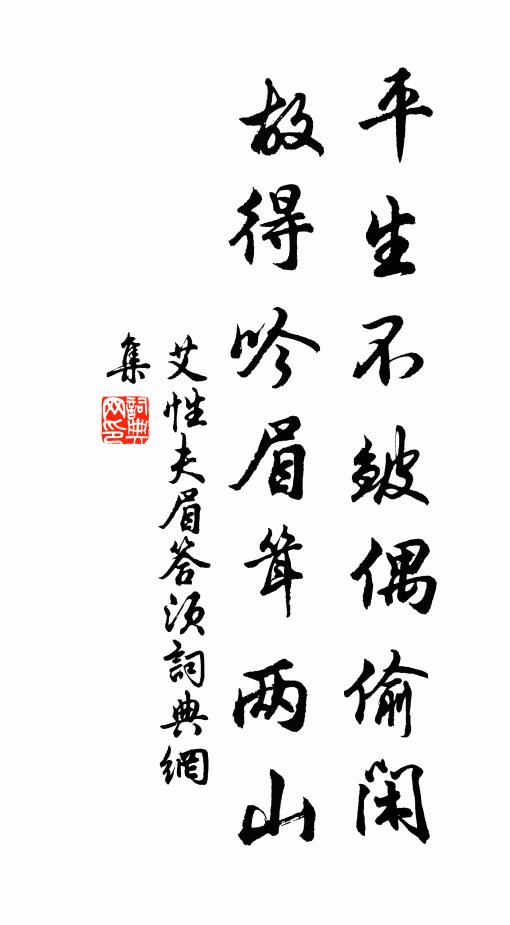 平生不皱偶偷闲
故得吟眉耸两山
艾性夫眉答須詞典網
集
詞典
网印